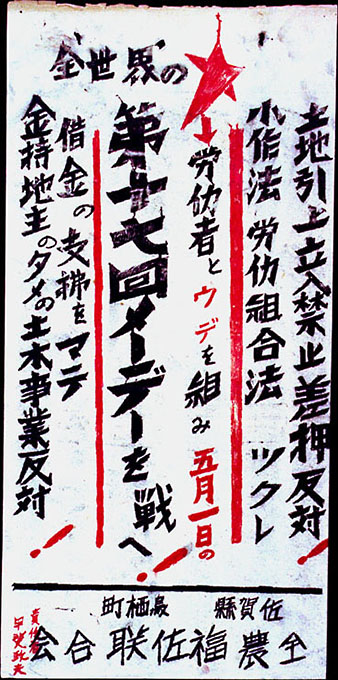 土地引上立入禁止差押反対!
小作法 労仂組合法 ツクレ
全世界の
労仂者とウデを組み五月一日の
第十七回メーデーを戦へ!
借金の支拂をマテ
金持地主のタメの土木事業反対!
佐賀縣 鳥栖町
全農福佐联合会
責任者